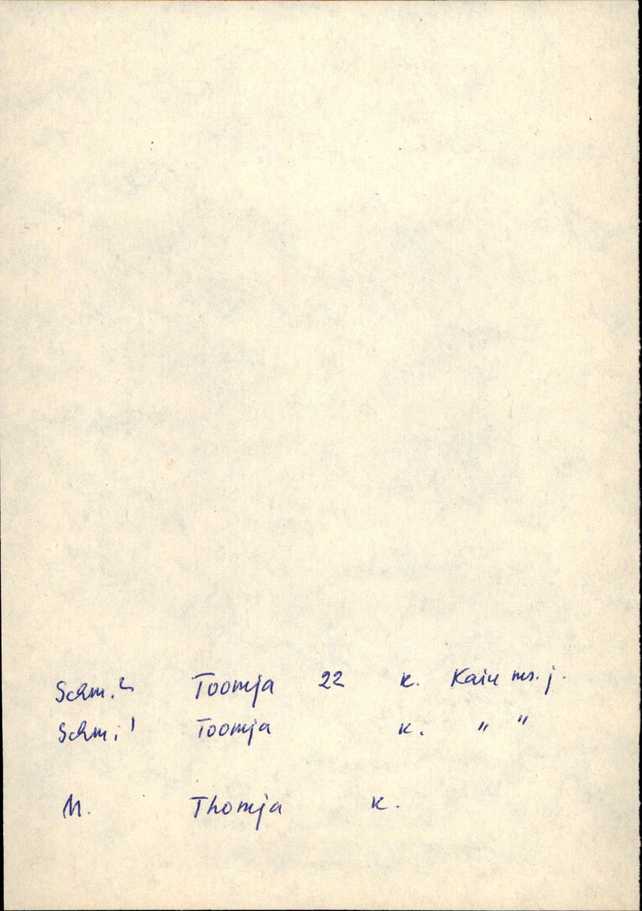 Schm.² Toomja 22 k. Kaiu ms. j.
Schm.¹ Toomja k. " "
M. Thomja k.